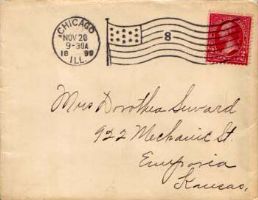 CHICAGO
NOV 28
9-30A
18 98
ILL.
8
Mrs Dorothea Seward
922 Mechanic St.
Emporia
Kansas.